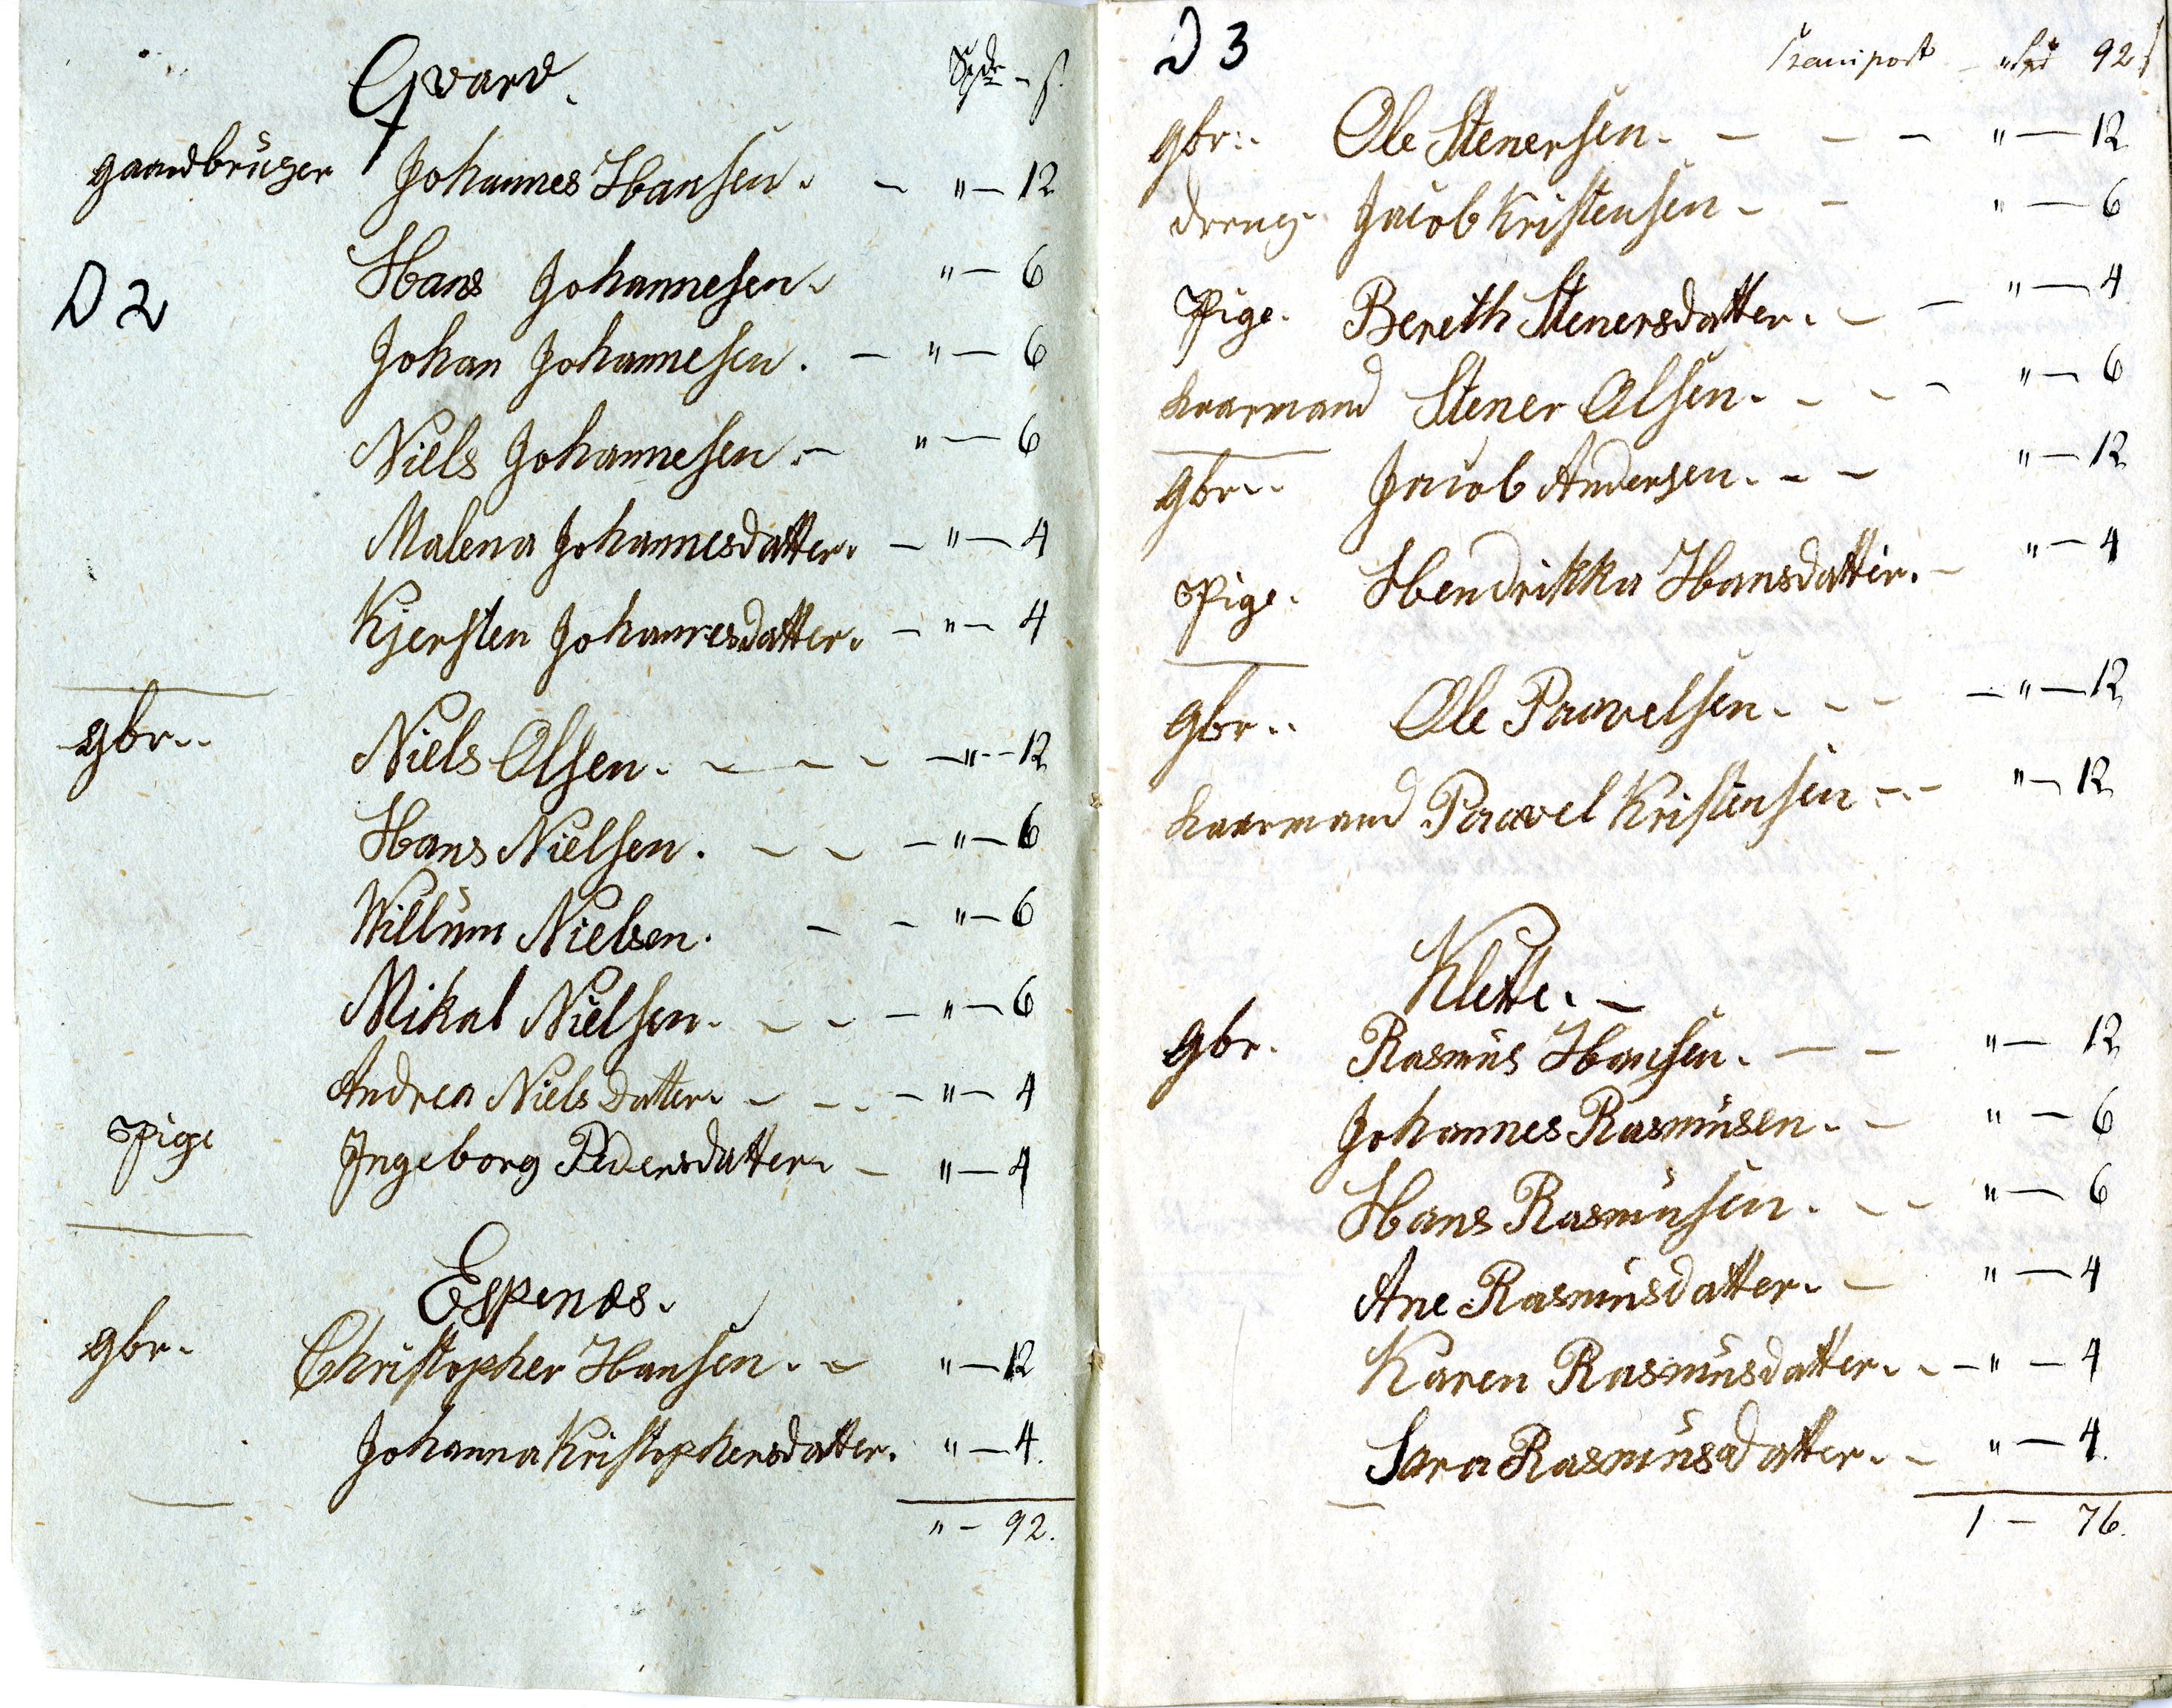 Qvard. Spdr - s.
gaardbruger Johannes Hansen. - " - 12
D 2
Hans Johannesen. " - 6
Johan Johannesen. - " - 6
Niels Johannesen. - " - 6
Malena Johannesdatter. - " - 4
Kjersten Johannesdatter. - " - 4
gbr.. Niels Olsen. - - - - " - 12
Hans Nielsen. - - - " - 6
Willum Nielsen. - - " - 6
Mikal Nielsen. - - - " - 6
Andrea Nielsdatter. - - - - " - 4
Pige Ingeborg Pedersdatter. - " - 4
Espenæs.
gbr. Christopher Hansen. - " - 12
Johanna Kristophersdatter. " - 4.
" - 92.
D 3
Transport - " 92 s
gbr.. Ole Stenersen. - - - " - 12
dreng Jacob Kristensen - - " - 6
Pige. Bereth Stenersdatter. - - " - 4
Kaarmand Stener Olsen. - - - " - 6
gbr.. Jacob Andersen. - - " - 12
Pige. Hendrikka Hansdatter. - " - 4
gbr.. Ole Paavelsen. - - - " - 12
Kaarmand Paavel Kristensen - - " - 12
Klette. -
gbr. Rasmus Hansen. - - " - 12
Johannes Rasmusen. - " - 6
Hans Rasmusen. - - " - 6
Ane Rasmusdatter. - " - 4
Karen Rasmusdatter. - - " - 4
Sara Rasmusdatter. - " - 4.
1 - 76.